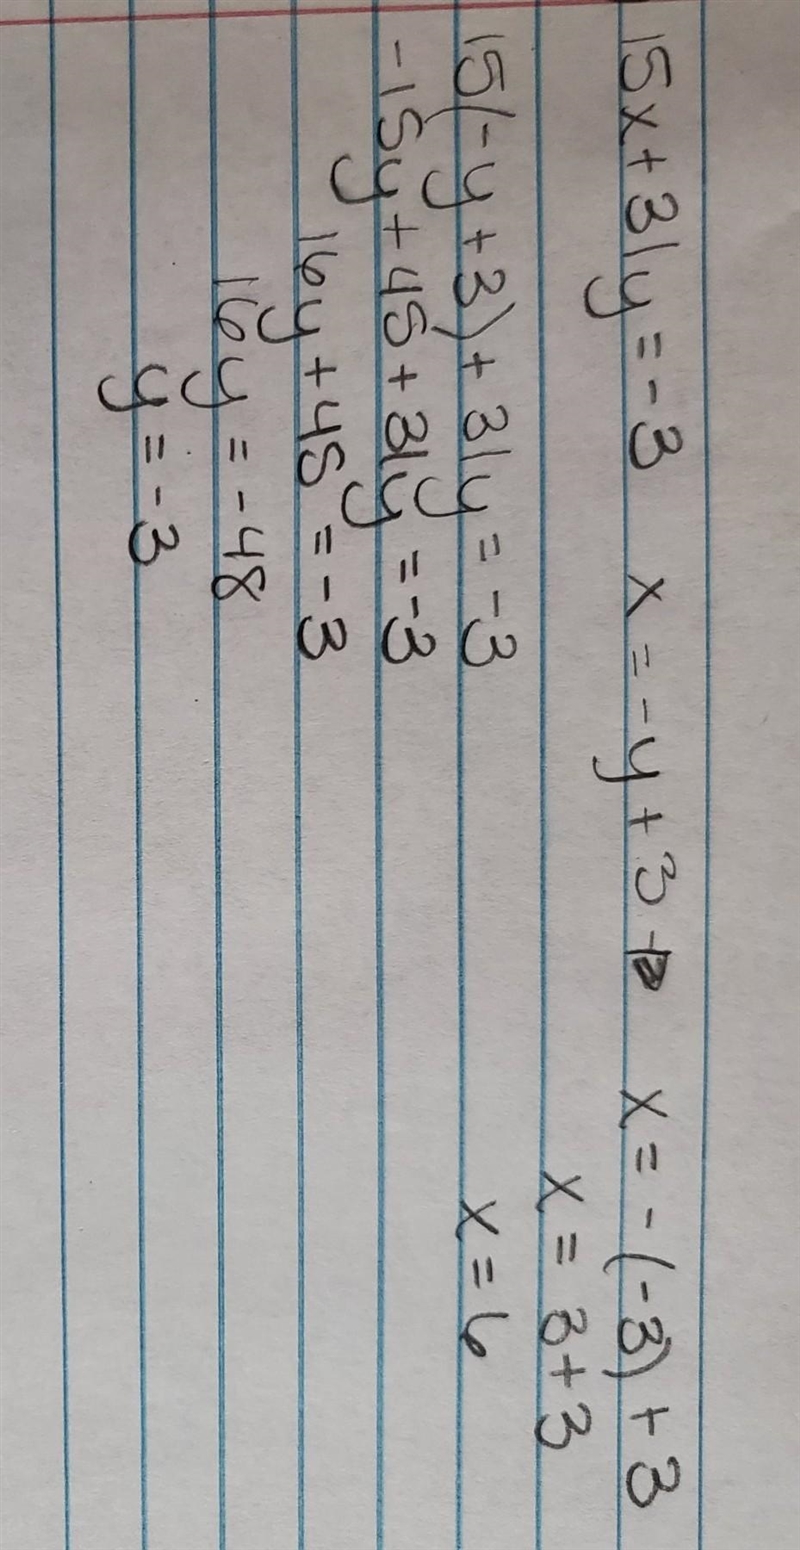 15x+31y=-3 x=-y+3 x=-(-3)+3
x=3+3
15(-y+3)+31y=-3 x=6
-15y+45+31y=-3
16y+45=-3
16y=-48
y=-3